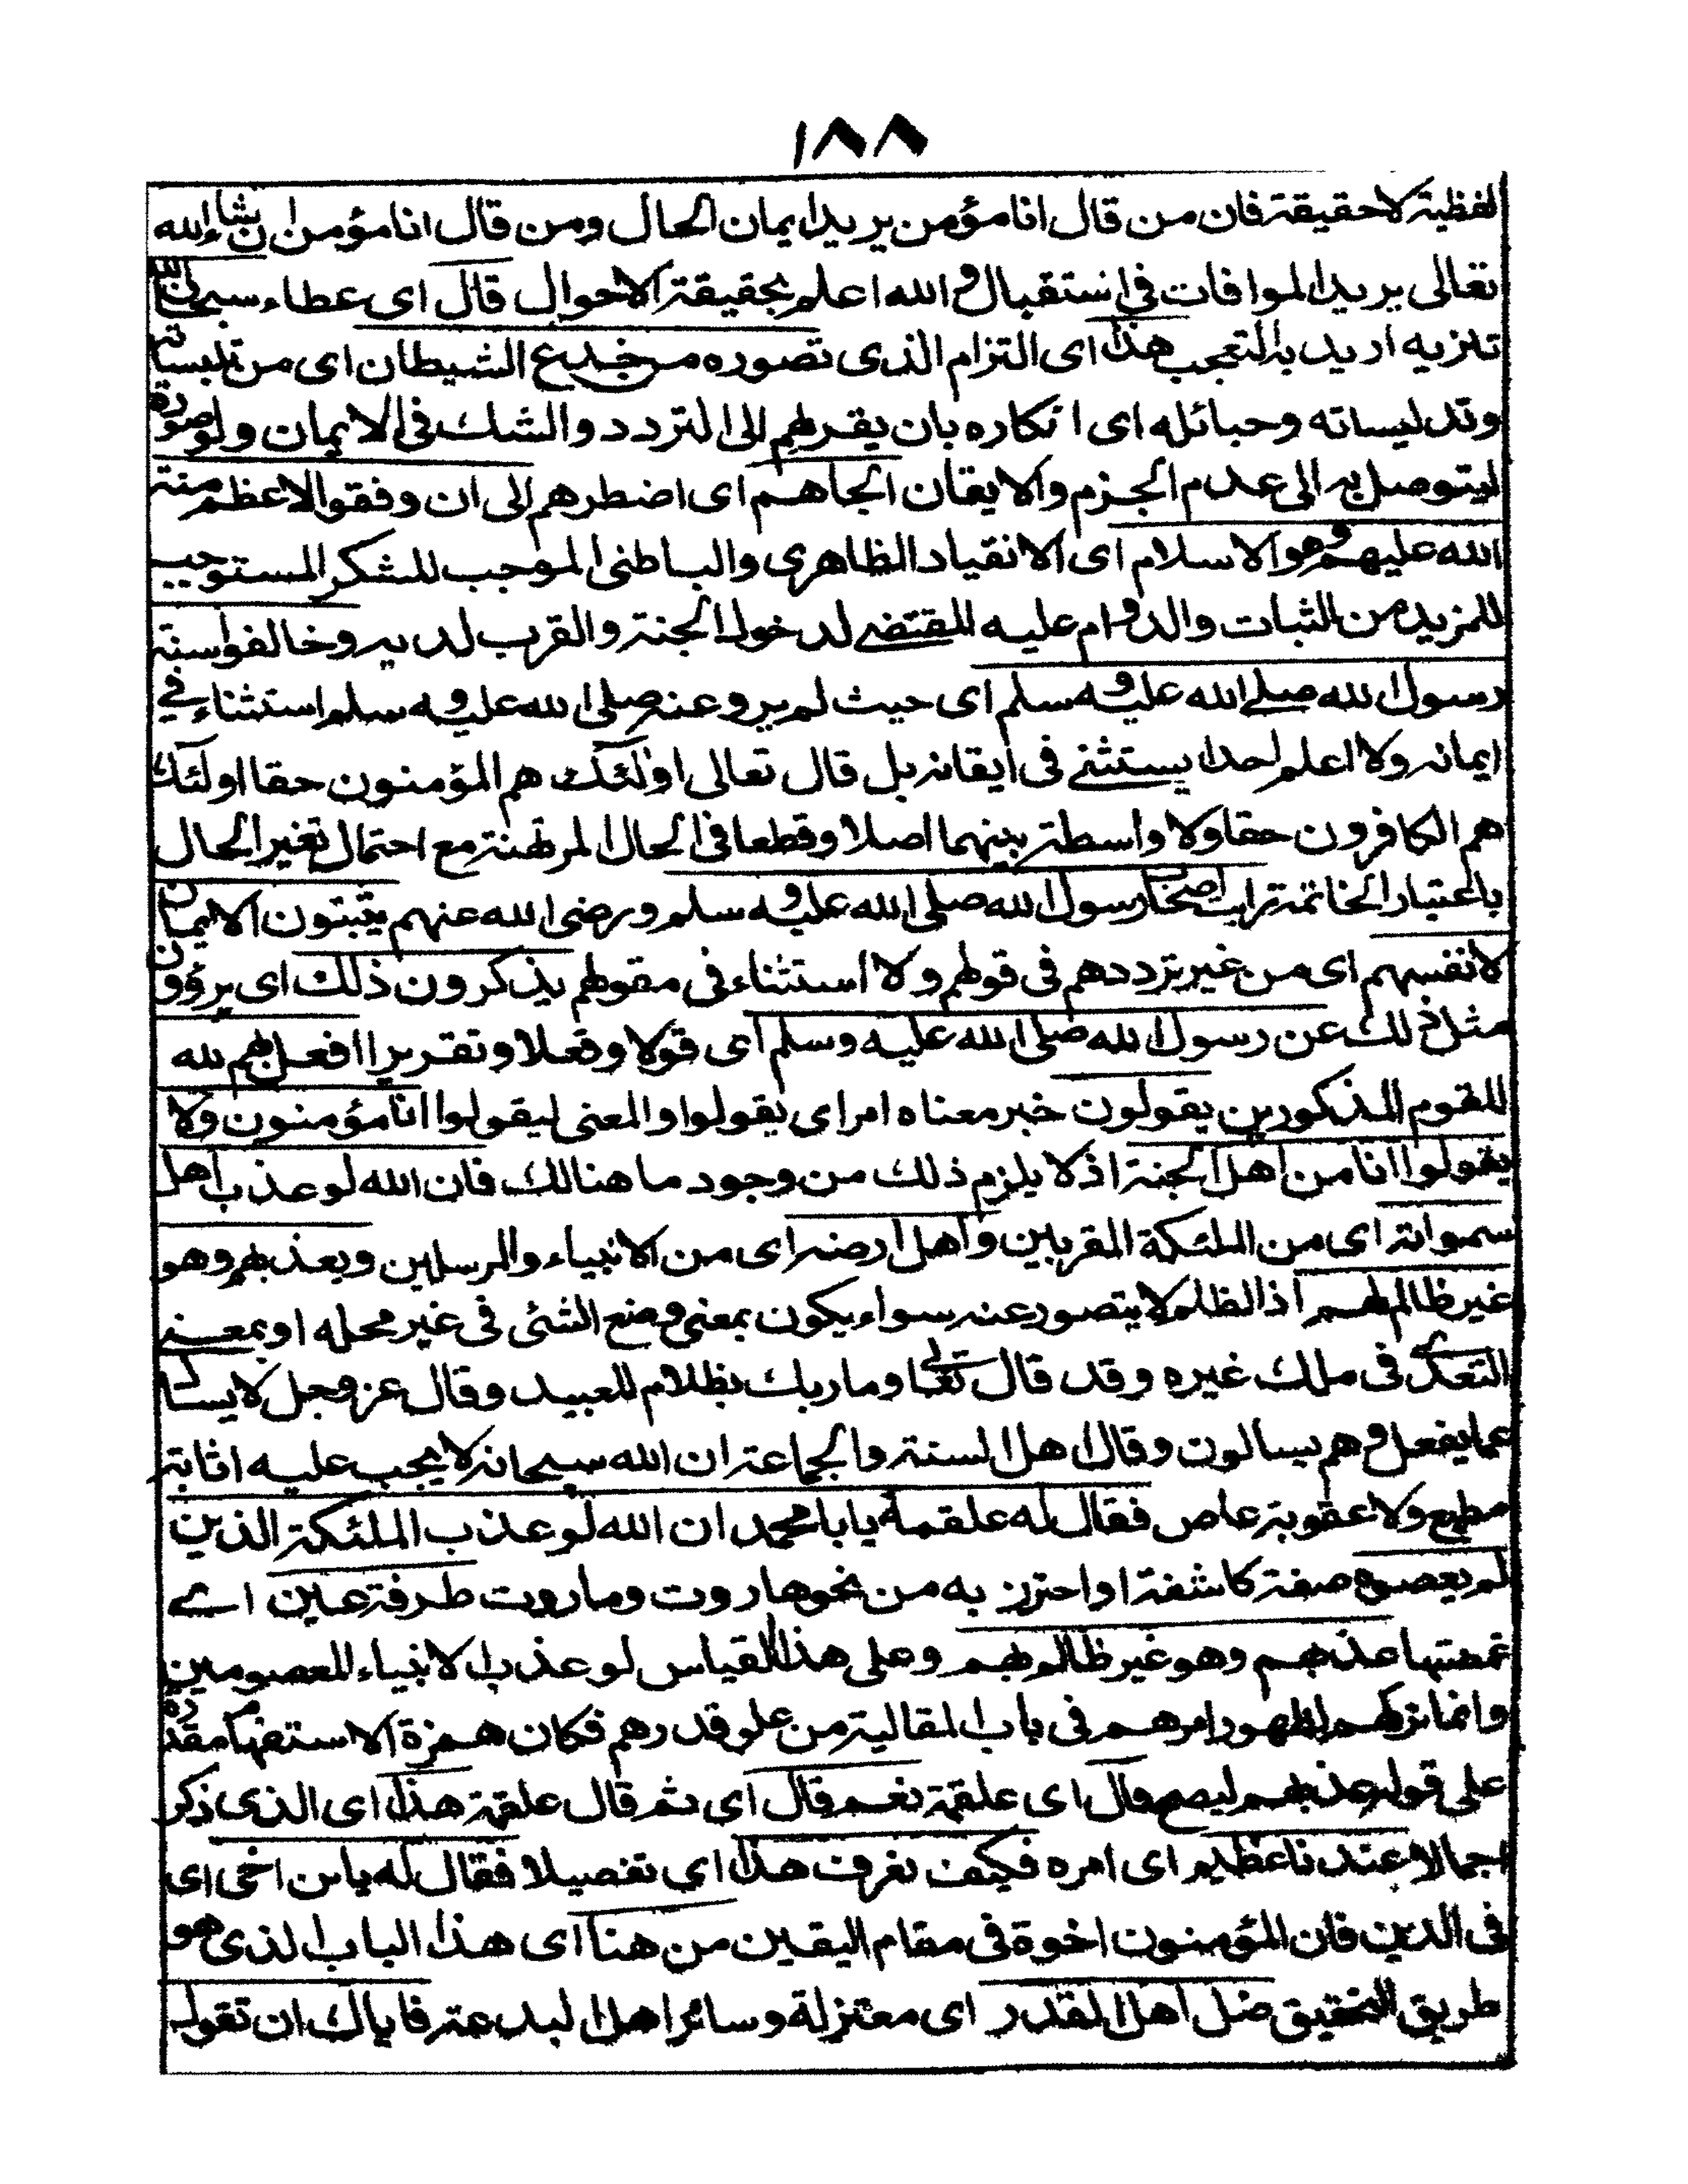 ١٨٨
لفظية لا حقيقة فان من قال انا مؤمن يريد ايمان الحال ومن قال انا مؤمن ان شاء الله
تعالى يريد الموافات في استقبال والله اعلم بحقيقة الاحوال قال اى عطاء سبحان الله
تنزيه اريد به التعجب هذا اى التزام الذى تصوره من خديع الشيطان اى من تلبيساته
وتدليساته وحبائله اى انكاره بان يقربهم الى التردد والشك فى الايمان ولو صورة
ليتوصل به الى عدم الجزم والايقان الجاهم اى اضطرهم الى ان وفقوا لاعظم منة
الله عليهم وهو الاسلام اى الانقياد الظاهرى والباطنى الموجب للشكر المستوجب
للمزيد من الثبات والدوام عليه المقتضى لدخول الجنة والقرب لديه وخالفوا سنة
رسول الله صلى الله عليه وسلم اى حيث لم يرو عنه صلى الله عليه وسلم استثناء في
ايمانه ولا اعلم احدا يستثنى فى ايقانه بل قال تعالى اولئك هم المؤمنون حقا اولئك
هم الكافرون حقا ولا واسطة بينهما اصلا وقطعا فى الحال المرتهنة مع احتمال تغير الحال
باعتبار الخاتمة رايت اصحاب رسول الله صلى الله عليه وسلم ورضى الله عنهم يثبتون الايمان
لانفسهم اى من غير ترددهم فى قولهم ولا استثناء فى مقولهم يذكرون ذلك اى يرؤون
مثل ذلك عن رسول الله صلى الله عليه وسلم اى قولا وفعلا وتقريرا افعل لهم لله
للقوم المذكورين يقولون خبر معناه امر اى يقولوا والمعنى ليقولوا انا مؤمنون ولا
يقولوا انا من اهل الجنة اذ لا يلزم ذلك من وجود ما هنالك فان الله لو عذب اهل
سمواته اى من الملئكة المقربين واهل ارضه اى من الانبياء والمرسلين ويعذبهم وهو
غير ظالم لهم اذ الظلم لا يتصور عنه سواء يكون بمعنى وضع الشئى فى غير محله او بمعنى
التعدى فى ملك غيره وقد قال تعالى وما ربك بظلام للعبيد وقال عز وجل لا يسال
عما يفعل وهم يسالون وقال اهل السنة والجماعة ان الله سبحانه لا يجب عليه اثابة
مطيع ولا عقوبة عاص فقال له علقمة يابا محمد ان الله لو عذب الملئكة الذين
لم يعصوه صفة كاشفة او احترز به من نحو هاروت وماروت طرفة عين اى
غمضتها عذبهم وهو غير ظالم لهم وعلى هذا القياس لو عذب الانبياء المعصومين
وانما تركهم لظهور امرهم فى باب المقالية من علو قدرهم فكان همزة الاستفهام مقدرة
على قوله عذبهم ليصح قال اى علقمة نعم قال اى ثم قال علقمة هذا اى الذى ذكر
اجمالا عندنا عظيم اى امره فكيف نعرف هذا اى تفصيلا فقال له يا بن اخى اى
فى الدين فان المؤمنون اخوة فى مقام اليقين من هنا اى هذا الباب الذى هو
طريق التحقيق ضل اهل القدر اى معتزلة وسائر اهل البدعة فاياك ان تقول